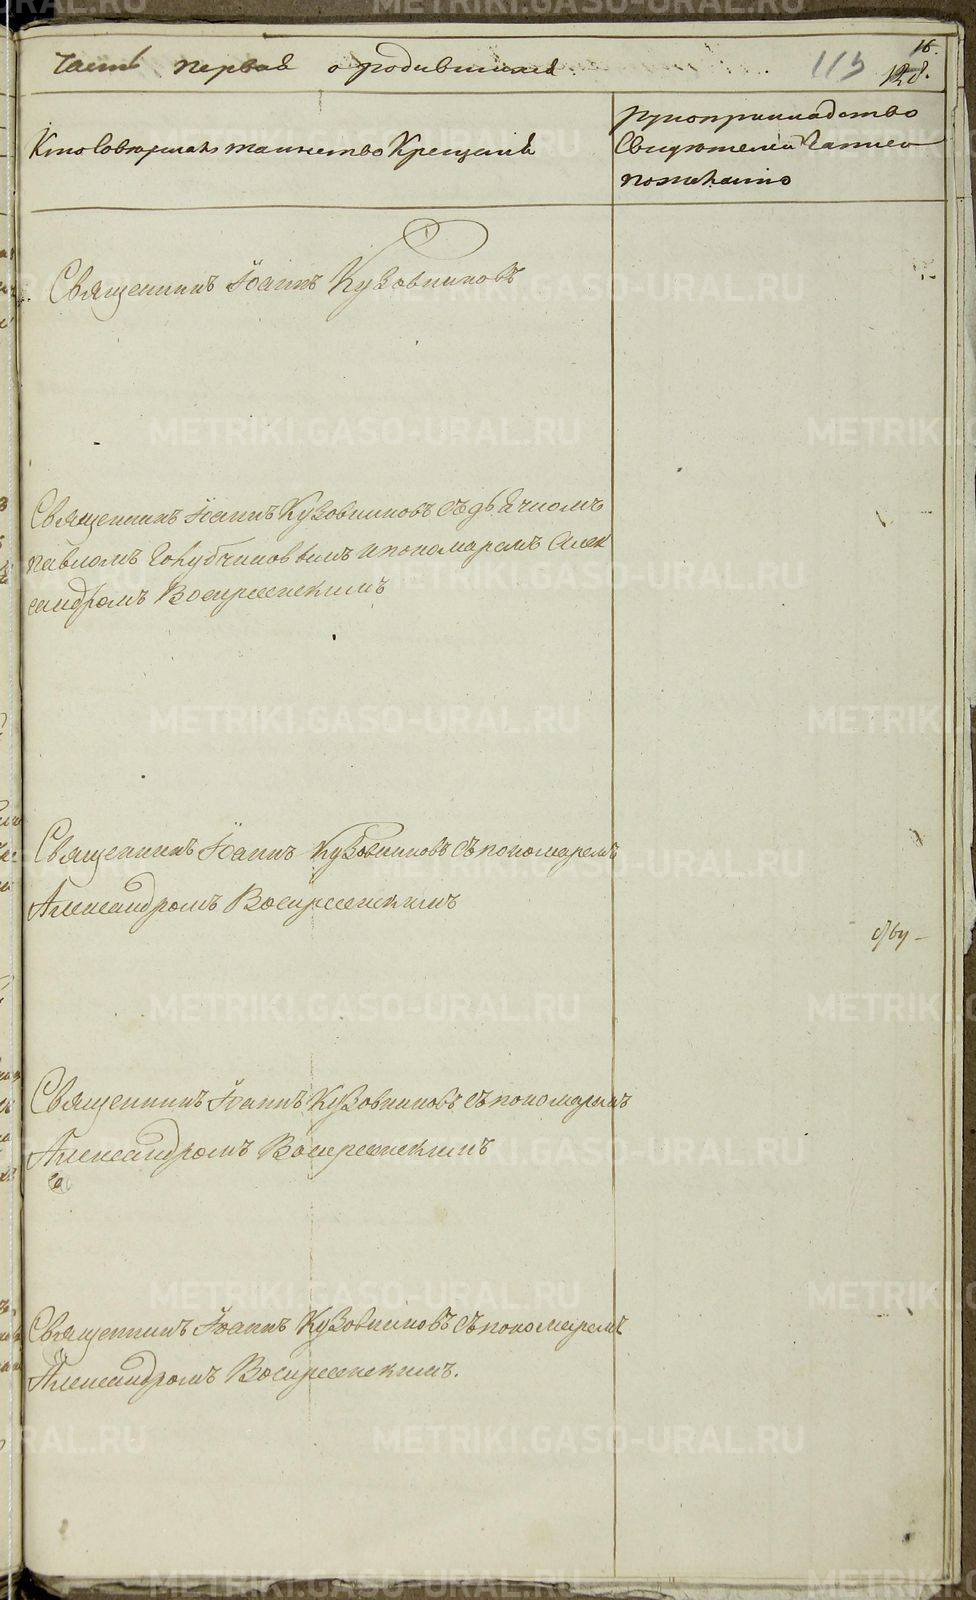 16.
Часть первая о родившихся 115 128.
Кто Совершалъ таинство Крещенія
рукоприкладство
Свидетелей Записи
пожеланію
Священникъ Іоаннъ Кузовниковъ
Священникъ Іоаннъ Кузовниковъ съ дьячкомъ
Павломъ Голубчиковымъ и пономаремъ Алек
сандромъ Воскресенскимъ
Священникъ Іоаннъ Кузовниковъ съ пономаремъ
Александромъ Воскресенскимъ
Священникъ Іоаннъ Кузовниковъ съ пономаремъ
Александромъ Воскресенскимъ
Священникъ Іоаннъ Кузовниковъ съ пономаремъ
Александромъ Воскресенскимъ.
METRIKI.GASO-URAL.RU